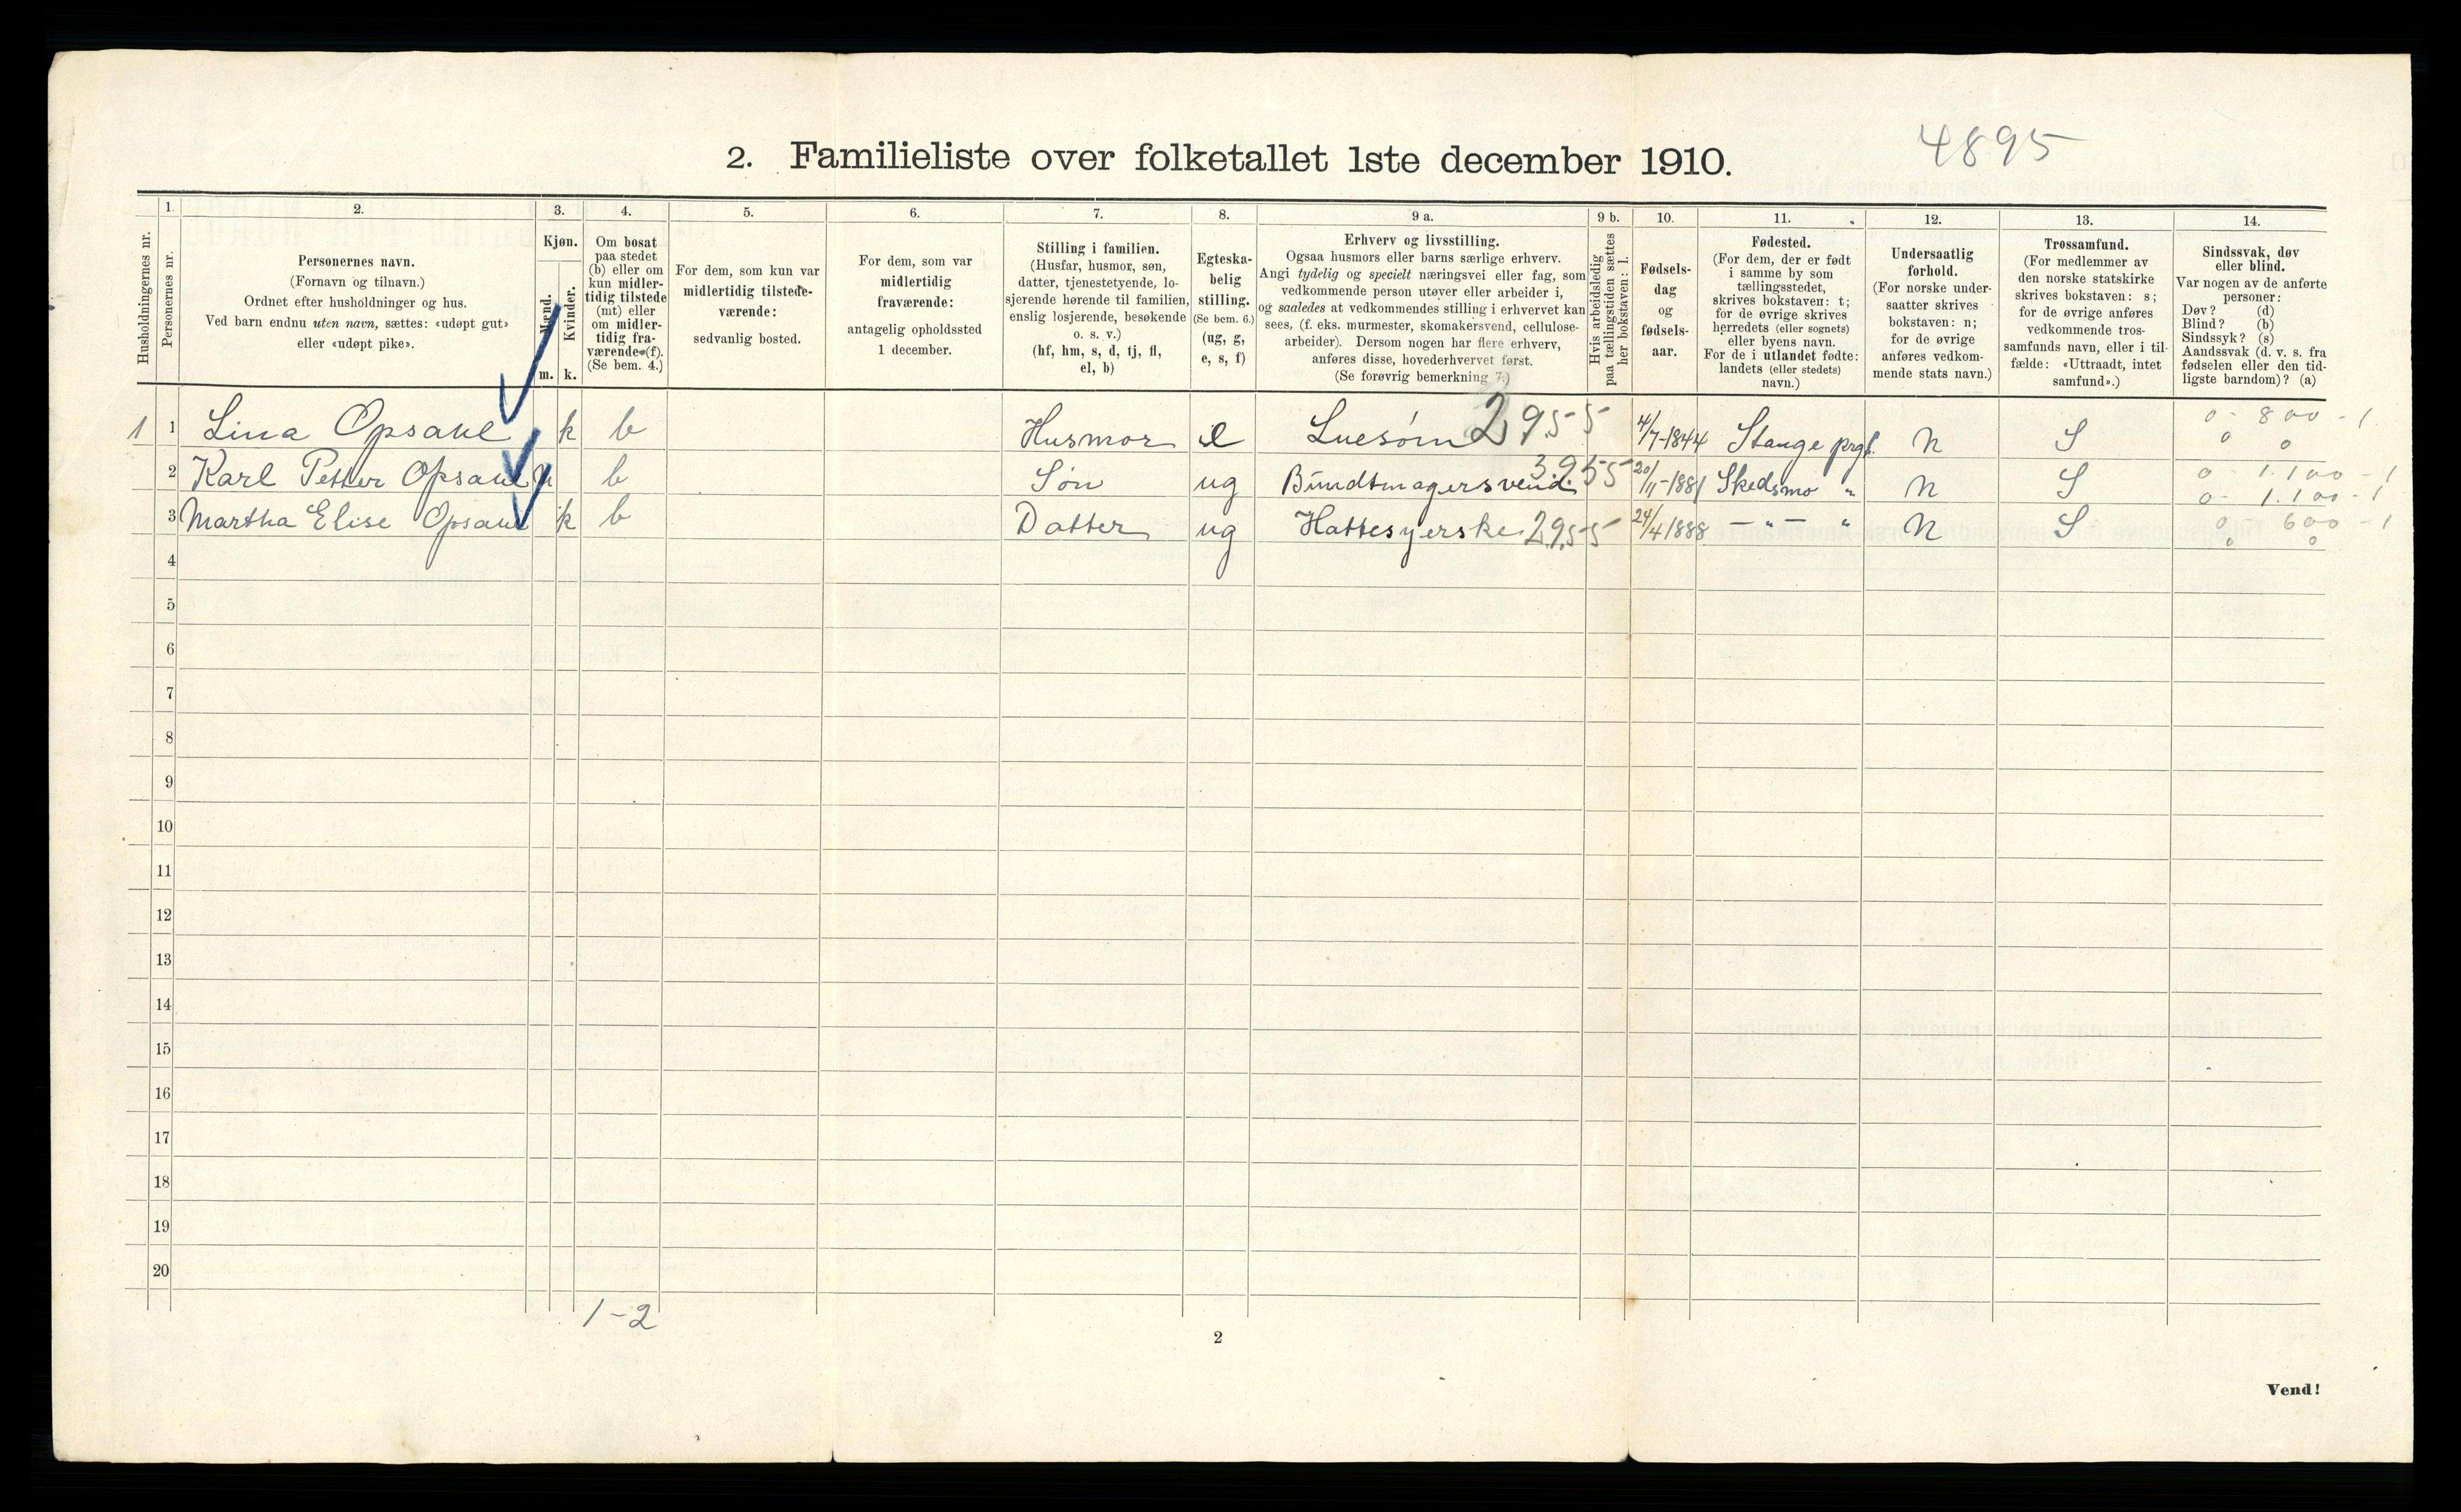 4895
2. Familieliste over folketallet 1ste december 1910.
Husholdningernes nr.
1.
Personernes nr.
2.
Personernes navn.
(Fornavn og tilnavn.)
Ordnet efter husholdninger og hus.
Ved barn endnu uten navn, sættes: «udøpt gut»
eller «udøpt pike».
3.
Kjøn.
Mænd.
Kvinder.
m. k.
4.
Om bosat
paa stedet
(b) eller om
kun midler-
tidig tilstede
(mt) eller
om midler-
tidig fra-
værende (f).
(Se bem. 4.)
5.
For dem, som kun var
midlertidig tilstede-
værende:
sedvanlig bosted.
6.
For dem, som var
midlertidig
fraværende:
antagelig opholdssted
1 december.
7.
Stilling i familien.
(Husfar, husmor, søn,
datter, tjenestetyende, lo-
sjerende hørende til familien,
enslig losjerende, besøkende
o. s. v.)
(hf, hm, s, d, tj, fl,
el, b)
8.
Egteska-
belig
stilling.
(Se bem. 6.)
(ug, g,
e, s, f)
9 a.
Erhverv og livsstilling.
Ogsaa husmors eller barns særlige erhverv.
Angi tydelig og specielt næringsvei eller fag, som
vedkommende person utøver eller arbeider i,
og saaledes at vedkommendes stilling i erhvervet kan
sees, (f. eks. murmester, skomakersvend, cellulose-
arbeider). Dersom nogen har flere erhverv,
anføres disse, hovederhvervet først.
(Se forøvrig bemerkning 7.)
9 b.
Hvis arbeidsledig
paa tællingstiden sættes
her bokstaven: l.
10.
Fødsels-
dag
og
fødsels-
aar.
11.
Fødested.
(For dem, der er født
i samme by som
tællingsstedet,
skrives bokstaven: t;
for de øvrige skrives
herredets (eller sognets)
eller byens navn.
For de i utlandet fødte:
landets (eller stedets)
navn.)
12.
Undersaatlig
forhold.
(For norske under-
saatter skrives
bokstaven: n;
for de øvrige
anføres vedkom-
mende stats navn.)
13.
Trossamfund.
(For medlemmer av
den norske statskirke
skrives bokstaven: s;
for de øvrige anføres
vedkommende tros-
samfunds navn, eller i til-
fælde: «Uttraadt, intet
samfund».)
14.
Sindssvak, døv
eller blind.
Var nogen av de anførte
personer:
Døv? (d)
Blind? (b)
Sindssyk? (s)
Aandssvak (d. v. s. fra
fødselen eller den tid-
ligste barndom)? (a)
1 1 Lina Opsahl k b Husmor Luesøm 2955 4/7-1844 Stange prgl. n S 0 - 800 - 1
0 0
2 Karl Petter Opsahl b Søn ug Bundtmagersvend 3955 20/11-1881 Skedsmo " n S 0 - 1.100 - 1
0 - 1.100 - 1
3 Martha Elise Opsahl k b Datter ug Hattesyerske 2955 24/4 1888 - " - " n S 0 600 - 1
0 0
4
5
6
7
8
9
10
11
12
13
14
15
16
17
18
19
20
1-2
2
Vend!